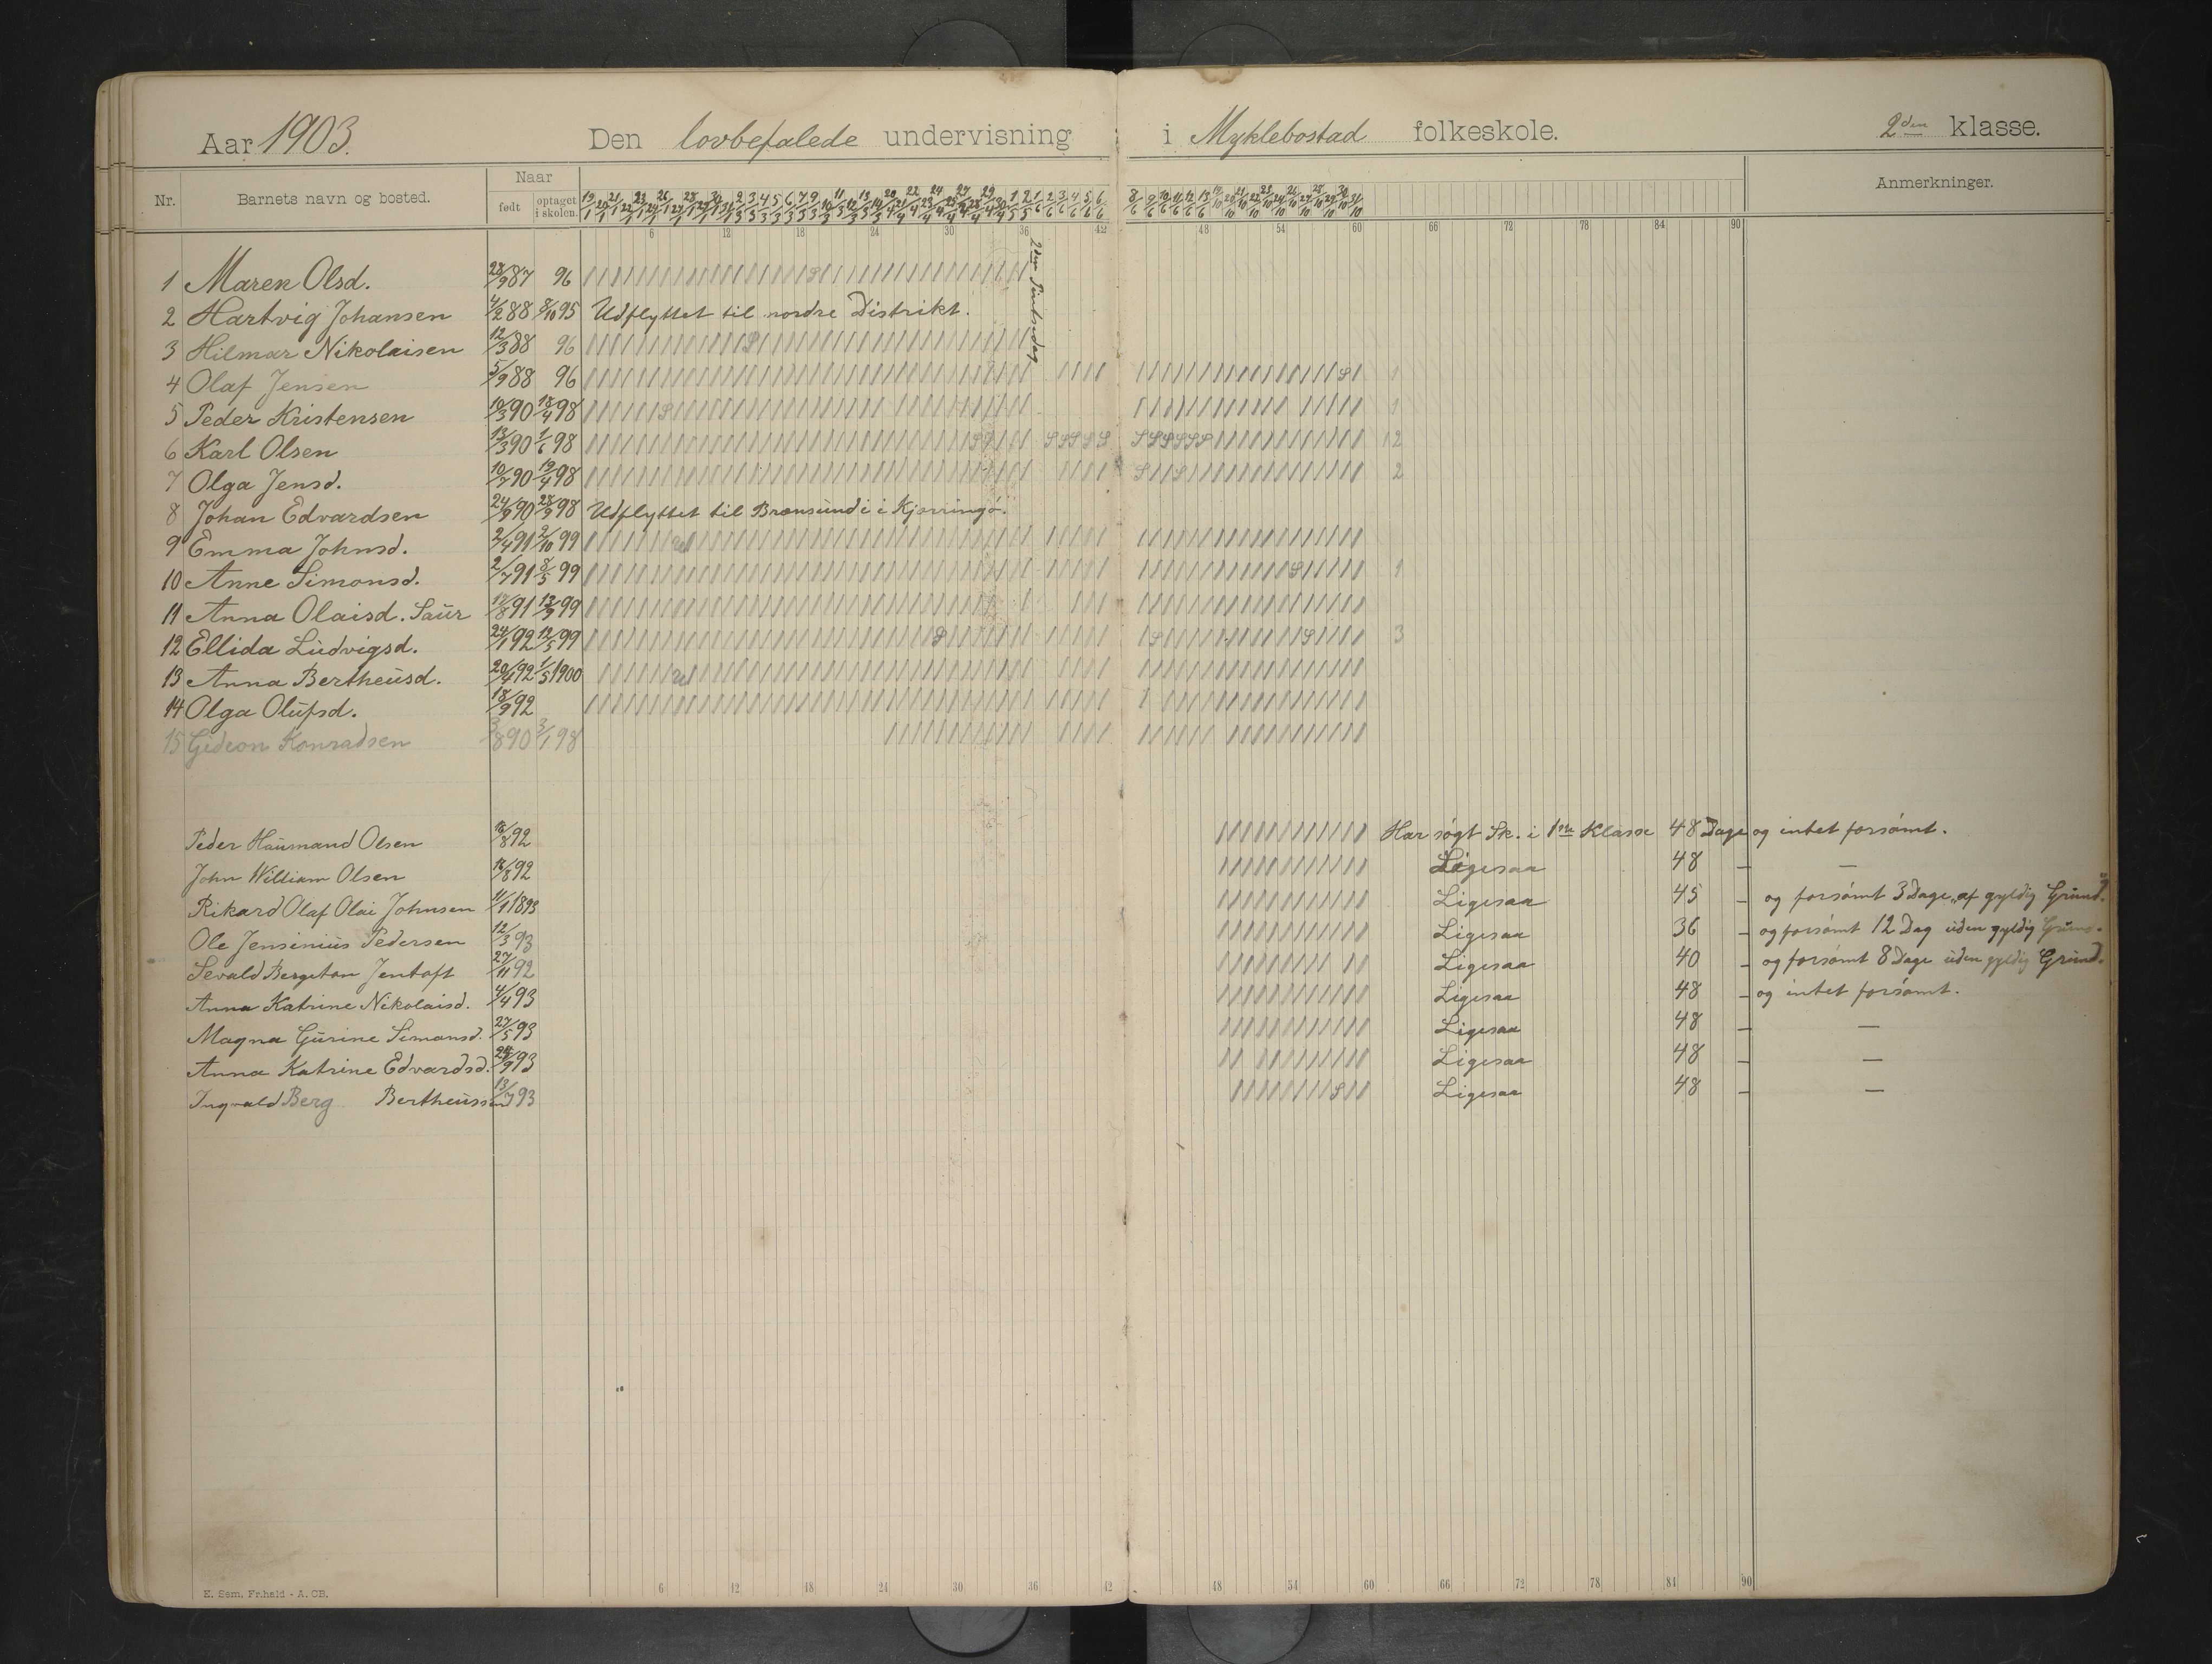 Aar 1903. Den lovbefalede undervisning i Myklebostad folkeskole. 2den klasse.
Nr. Barnets navn og bosted. Naar født optaget i skolen. Anmerkninger.
6 12 18 24 30 36 42 48 54 60 66 72 78 84 90
2den Pintsedag
1 Maren Olsd. 28/9 87 96
2 Hartvig Johansen 4/2 88 8/10 95 Udflyttet til nordre Distrikt.
3 Hilmar Nikolaisen 12/3 88 96
4 Olaf Jensen 5/9 88 96 1
5 Peder Kristensen 10/3 90 18/4 98 1
6 Karl Olsen 13/3 90 1/6 98 12
7 Olga Jensd. 10/7 90 19/4 98 2
8 Johan Edvardsen 24/9 90 28/9 98 Udflyttet til Brænsund i i Kjerringö.
9 Emma Johnsd. 2/4 91 2/10 99
10 Anne Simonsd. 2/7 91 8/5 99 1
11 Anna Olaisd. Saur 17/8 91 13/9 99
12 Ellida Ludvigsd. 24/1 92 12/5 99 3
13 Anna Bertheusd. 20/4 92 1/5 1900
14 Olga Olufsd. 18/9 92
15 Gideon Konradsen 3/8 90 3/1 98
Peder Haumand Olsen 18/8 92 Har søgt Sk. i 1ste Klasse 48 Dage og intet forsømt.
John William Olsen 18/8 92 Ligesaa 48 — —
Rikard Olaf Olai Johnsen 11/1 1893 Ligesaa 45 — og forsømt 3 Dage „af gyldig Grund."
Ole Jensenius Pedersen 12/3 93 Ligesaa 36 — og forsømt 12 Dag uden gyldig Grund.
Sevald Bergeton Jentoft 27/11 92 Ligesaa 40 — og forsømt 8 Dage uden gyldig Grund.
Anna Katrine Nikolaisd. 4/4 93 Ligesaa 48 — og intet forsømt.
Magna Gurine Simonsd. 27/5 93 Ligesaa 48 — —
Anna Katrine Edvardsd. 24/9 93 Ligesaa 48 — —
Ingvald Berg Bertheussen 13/7 93 Ligesaa 48 — —
6 12 18 24 30 36 42 48 54 60 66 72 78 84 90
E. Sem. Fr.hald - A. OB.